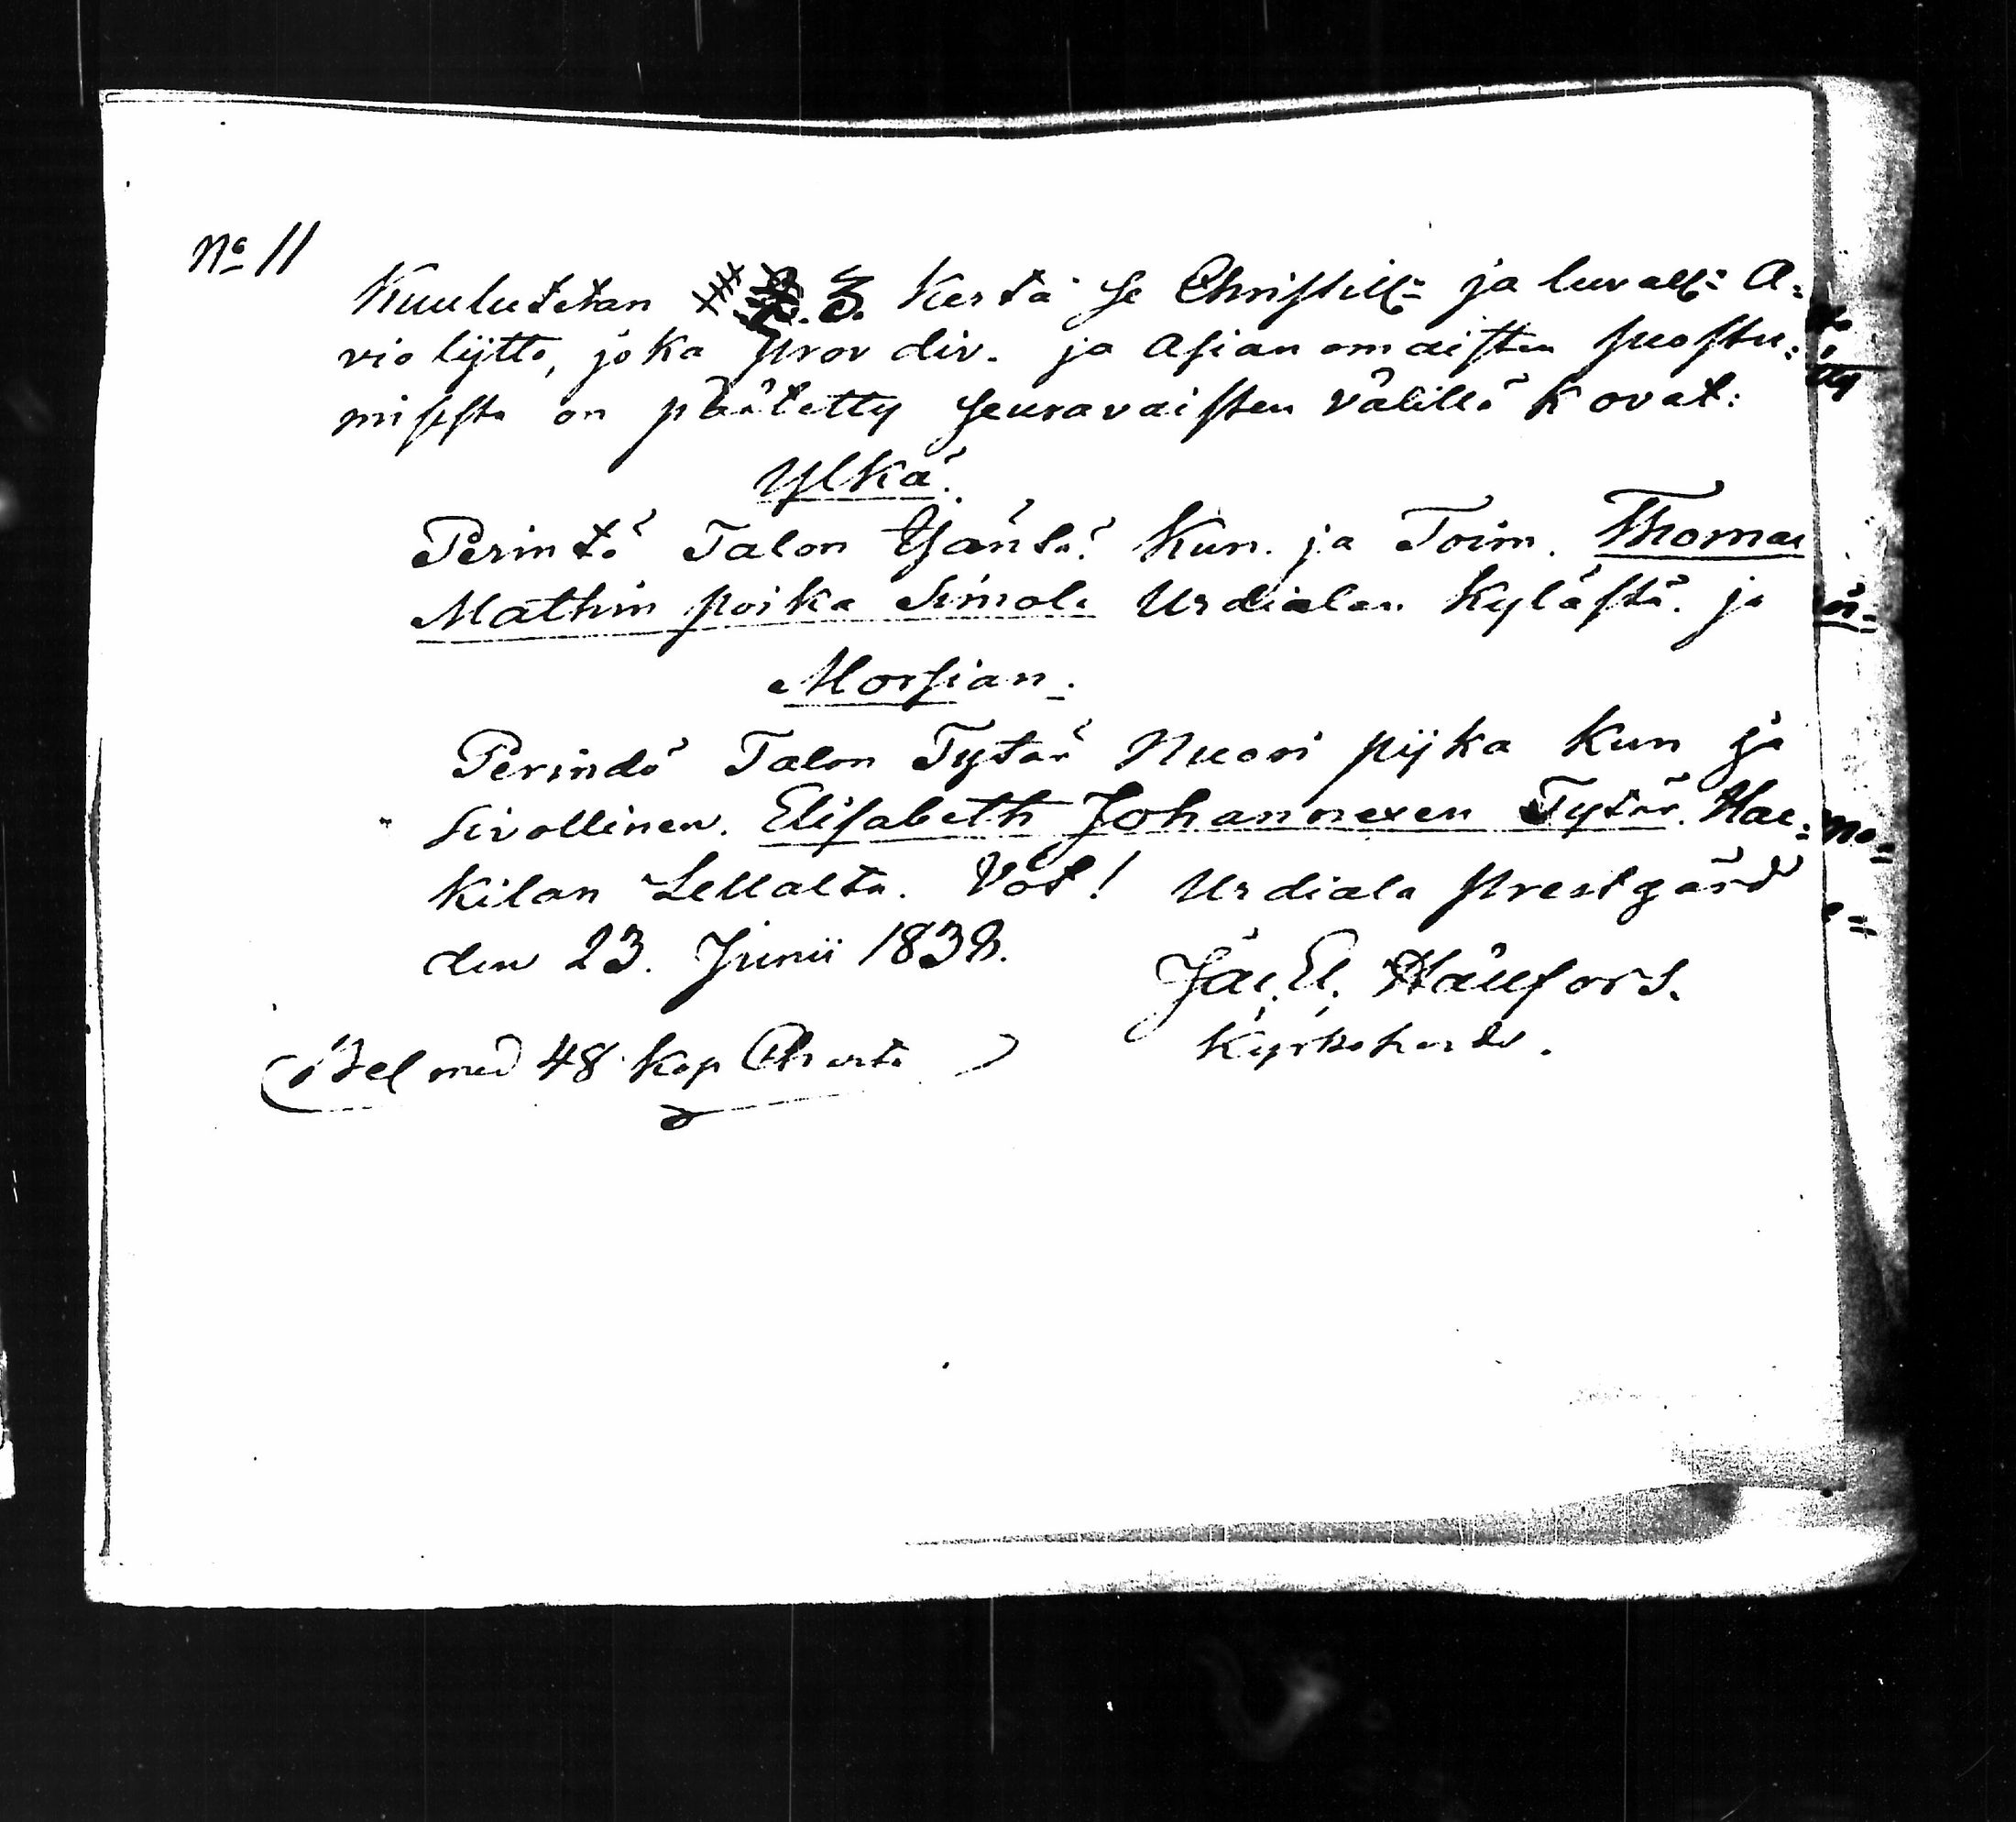 No 11
Kuulutetan 3. Kerta se Christill: ja luvall: A:
vio lijtto, joka prov div. ja Asianomaisten suostu:
misesta on päätetty seuravaisten välillä k ovat:
Ylkä.
Perintö Talon Isäntä. Kun. ja Toim. Thomas
Mathin poika Simola Urdialan Kylästä. ja
Morsian.
Perindö Talon Tytär Nuori pijka Kun ja
Sivollinen. Elisabeth Johannexen Tytär. Hae:
Kilan Lellalta. Vot! Urdiala Prestgård
den 23. Junii 1838.
Jac. El. Hällfors.
Kyrkoherde.
Bel med 48 Kop Charta